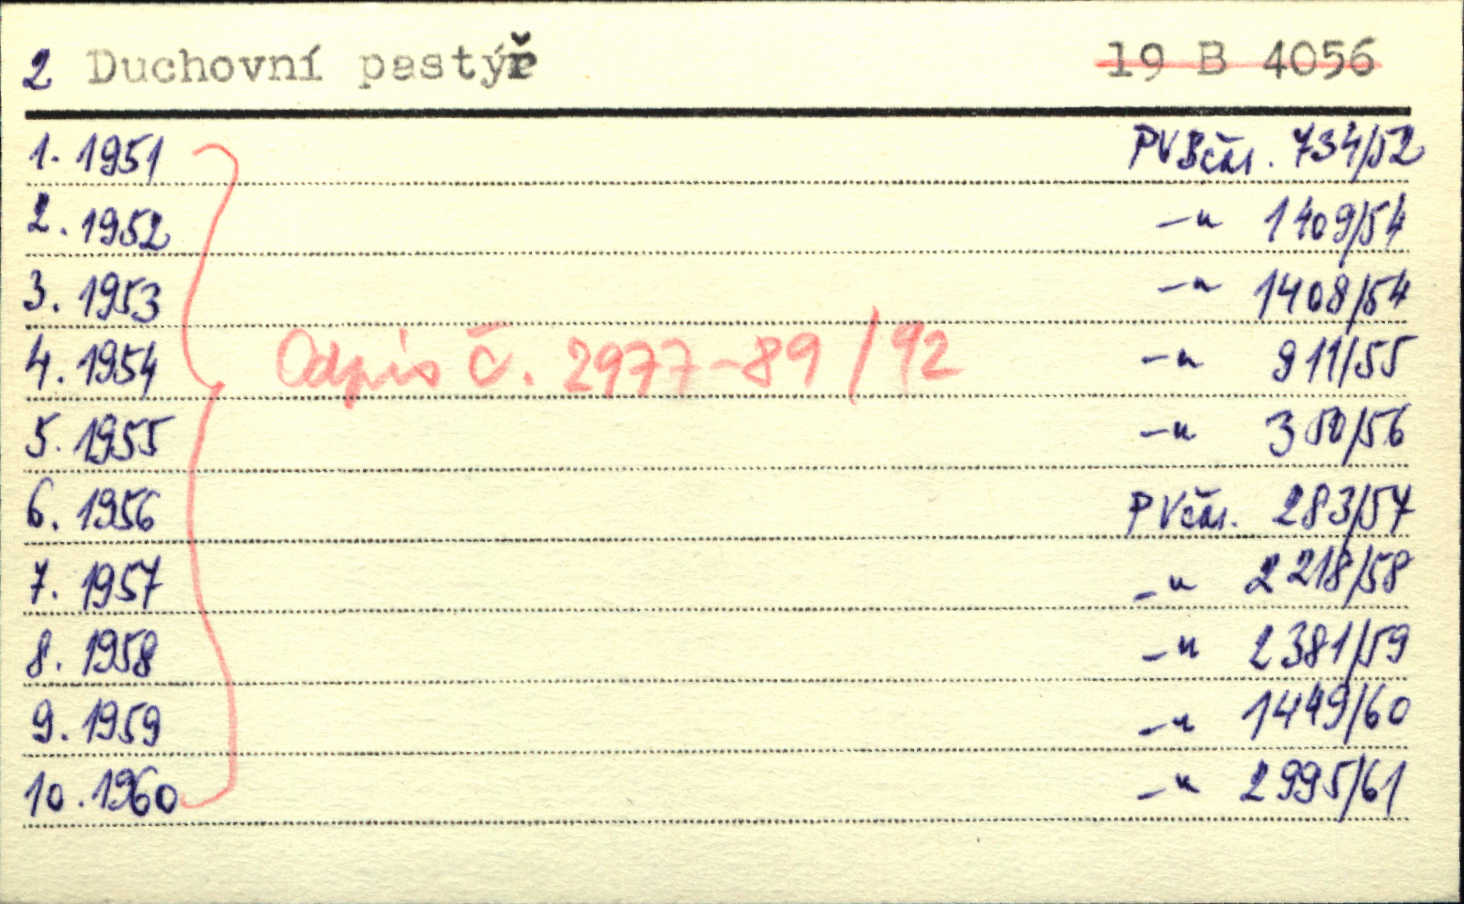 2 Duchovní pastýř 19 B 4056
1. 1951 PVBčás. 734/52
2. 1952 —〃 1409/54
3. 1953 —〃 1408/54
Odpis č. 2977-89/92
4. 1954 —〃 911/55
5. 1955 —〃 350/56
6. 1956 PVčás. 283/57
7. 1957 —〃 2218/58
8. 1958 —〃 2381/59
9. 1959 —〃 1449/60
10. 1960 —〃 2995/61